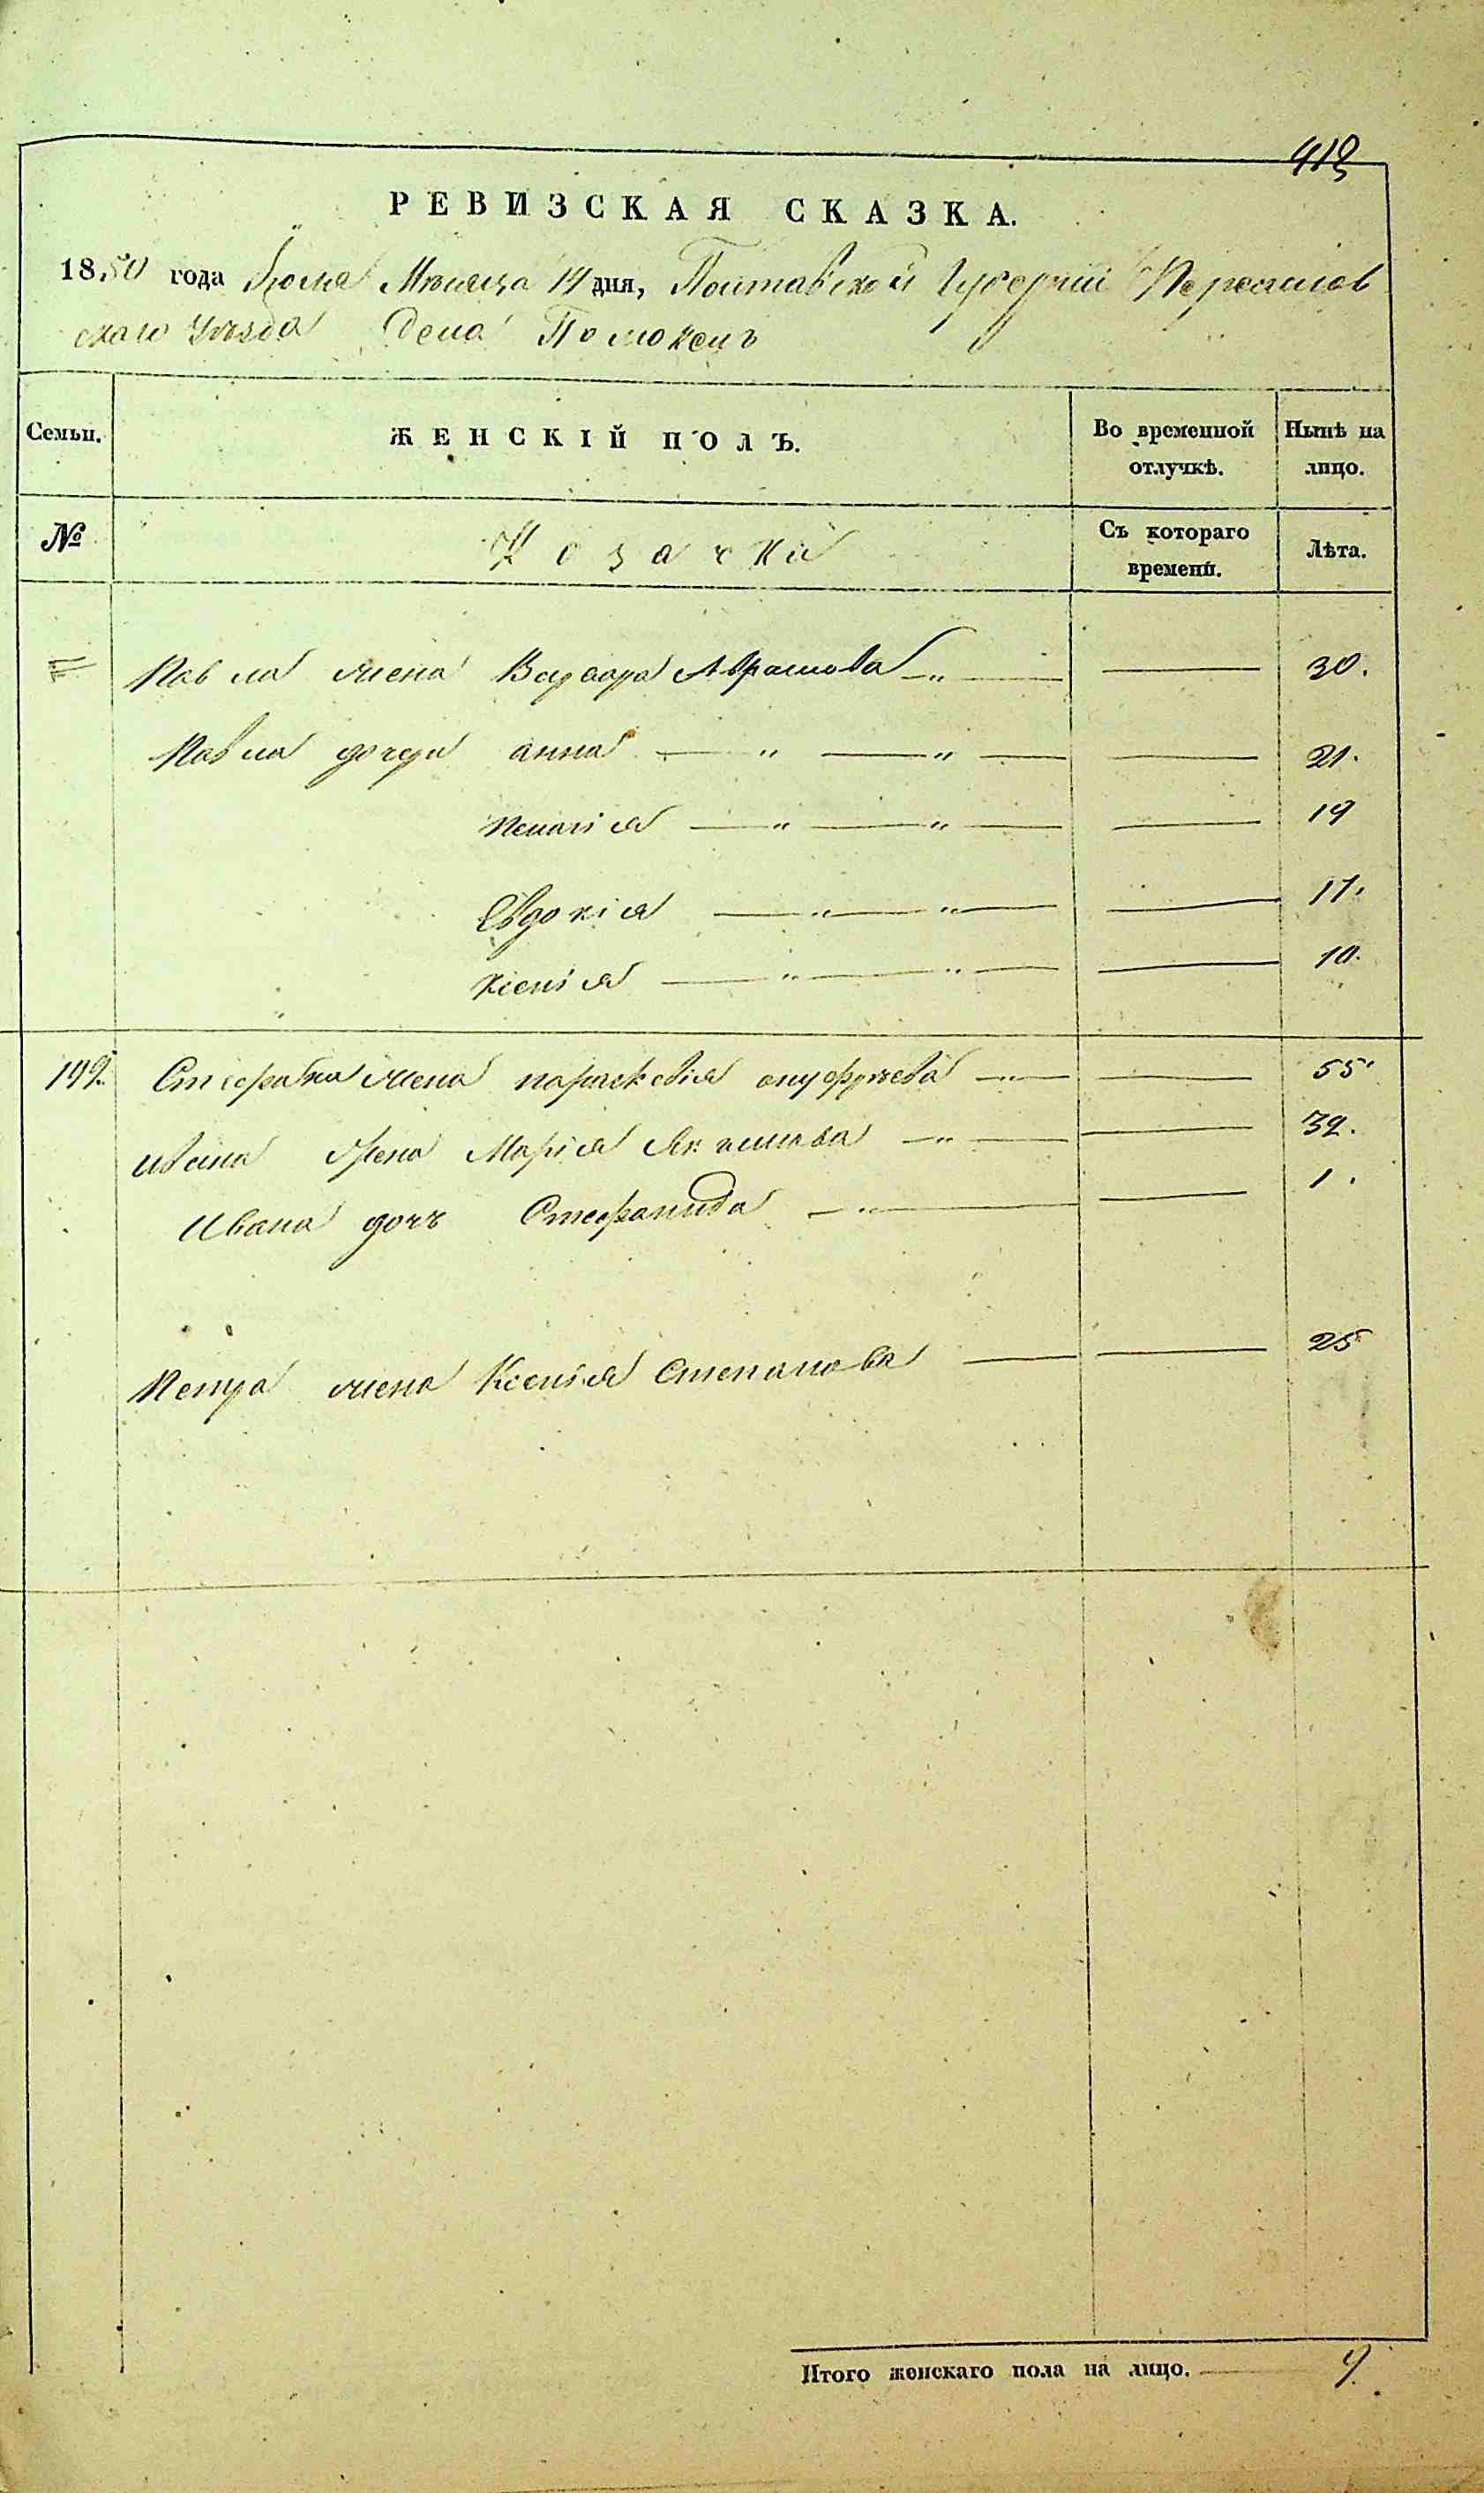 413
РЕВИЗСКАЯ СКАЗКА.
1850 года Іюня Месяца 14 дня, Полтавской Губерніи Переяслов
скаго Уезда Села Помоклъ
Семьи.
ЖЕНСКІЙ ПОЛЪ.
Во временной отлучкѣ.
Нынѣ на лицо.
№
Козачки
Съ котораго времени.
Лѣта.
Павла жена Варвара Аврамова — " — — 30.
Павла дочери анна — " — " — — 21.
Пелагія — " — " — — 19
Евдокія — " — " — — 17.
Ксенія — " — " — — 10.
192. Стефана жена параскевія ануфріева — " — — 55
Ивана жена Марія Якимова — " — — 32.
Ивана дочь Стефанида — " — — 1.
Петра жена Ксенія Степанова — — 25
Итого женскаго пола на лицо. — 9.